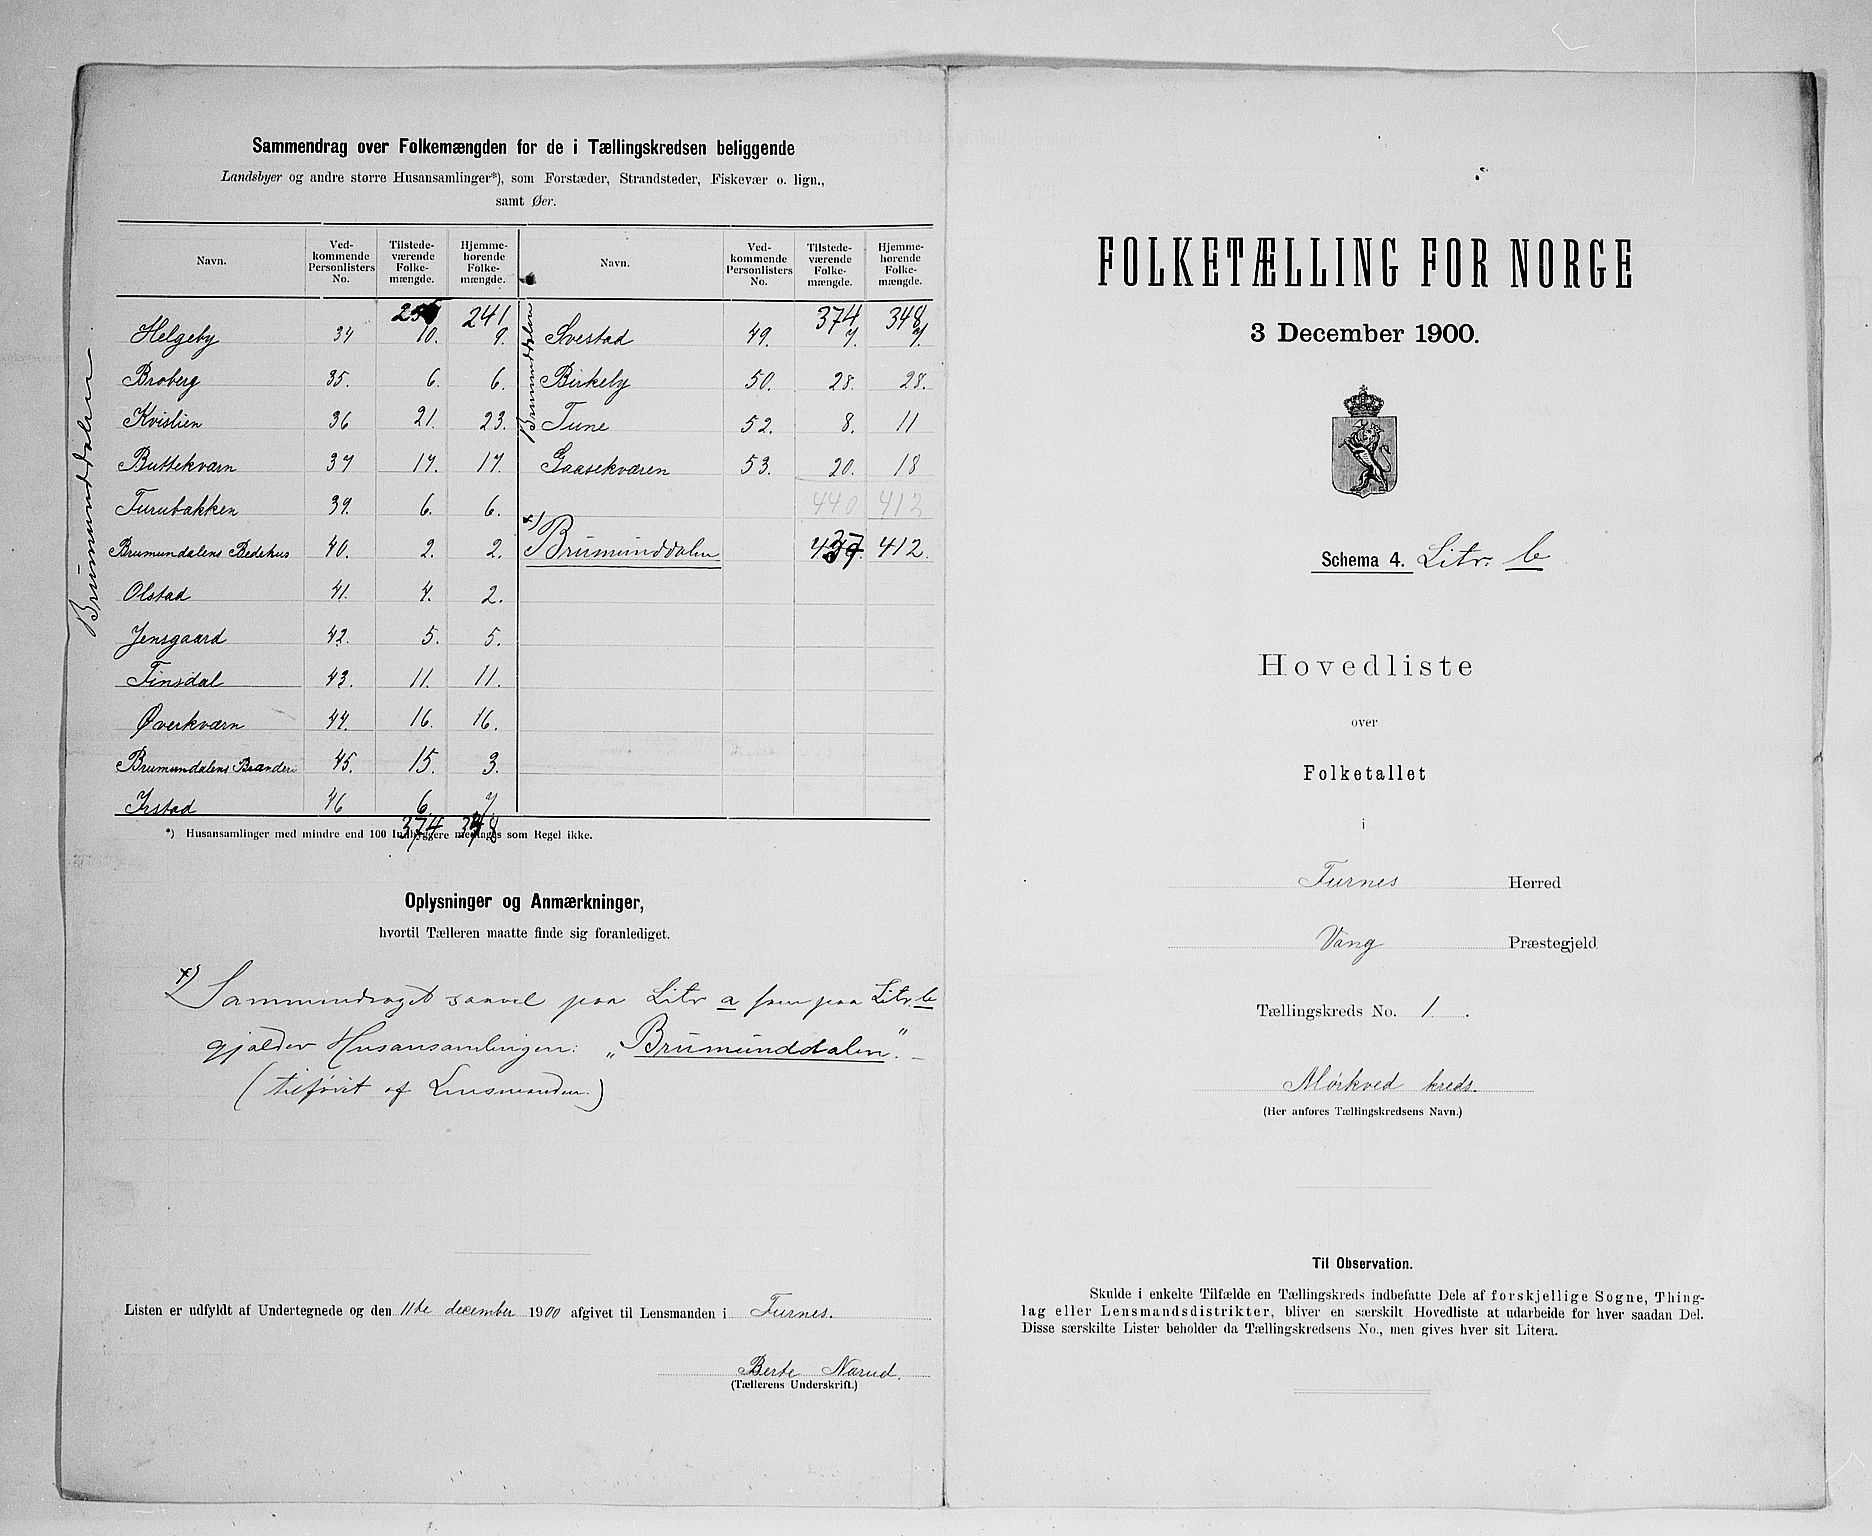 Sammendrag over Folkemængden for de i Tællingskredsen beliggende
Landsbyer og andre større Husansamlinger*), som Forstæder, Strandsteder, Fiskevær o. lign.,
samt Øer.
Navn. Ved-kommende Personlisters No. Tilstede-værende Folke-mængde. Hjemme-hørende Folke-mængde.
241
Helgeby 34 10. 9.
Broberg 35. 6. 6.
Kvislien 36 21. 23.
Buttekværn 37 17. 17.
Furubakken 39. 6. 6.
Brumundalens Bedehus 40. 2. 2.
Olstad 41. 4. 2.
Jensgaard 42. 5. 5.
Finsdal 43. 11. 11.
Øverkværn 44. 16. 16.
Brumundalens Brænderi 45. 15. 3.
Irstad 46 6. 7.
374 348
Brumunddalen
Navn. Ved-kommende Personlisters No. Tilstede-værende Folke-mængde. Hjemme-hørende Folke-mængde.
374 348
Svestad 49. 7. 7.
Birkeby 50. 28. 28.
Tune 52. 8. 11
Gaasekværen 53. 20. 18
440 412
x) Brumunddalen 437. 412.
Brumunddalen
*) Husansamlinger med mindre end 100 Indbyggere medtages som Regel ikke.
Oplysninger og Anmærkninger,
hvortil Tælleren maatte finde sig foranlediget.
x) Sammendraget saavel paa Litr a som paa Litr. b
gjælder Husansamlingen: „Brumunddalen".
(tilføiet af Lensmanden.)
Listen er udfyldt af Undertegnede og den 11te december 1900 afgivet til Lensmanden i Furnes.
Berte Narud.
(Tællerens Underskrift.)
FOLKETÆLLING FOR NORGE
3 December 1900.
Schema 4. Litr. b
Hovedliste
over
Folketallet
i
Furnes Herred
Vang Præstegjeld
Tællingskreds No. 1.
Mørkved kreds.
(Her anføres Tællingskredsens Navn.)
Til Observation.
Skulde i enkelte Tilfælde en Tællingskreds indbefatte Dele af forskjellige Sogne, Thing-
lag eller Lensmandsdistrikter, bliver en særskilt Hovedliste at udarbeide for hver saadan Del.
Disse særskilte Lister beholder da Tællingskredsens No., men gives hver sit Litera.